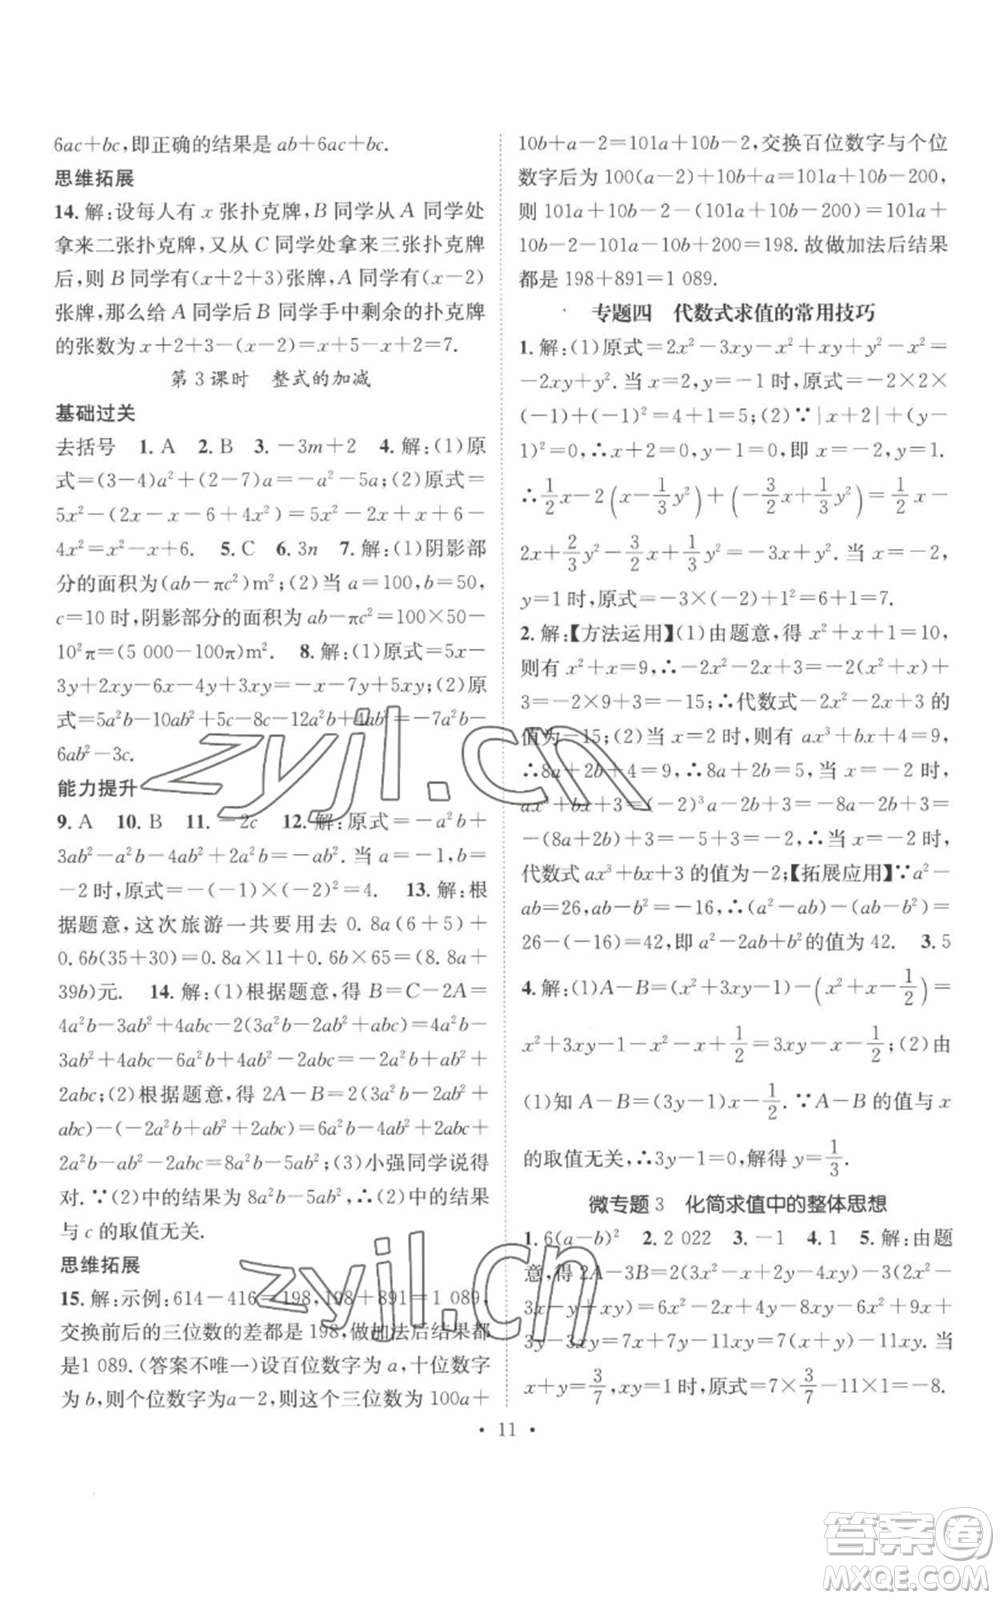 6ac+bc,即正确的结果是 ab+6ac+bc.
思维拓展
14. 解:设每人有 x 张扑克牌,B 同学从 A 同学处
拿来二张扑克牌,又从 C 同学处拿来三张扑克牌
后,则 B 同学有(x+2+3)张牌,A 同学有(x-2)
张牌,那么给 A 同学后 B 同学手中剩余的扑克牌
的张数为 x+2+3-(x-2)=x+5-x+2=7.
第 3 课时 整式的加减
基础过关
去括号 1. A 2. B 3. -3m+2 4. 解:(1)原
式=(3-4)a²+(2-7)a=-a²-5a;(2)原式=
5x²-(2x-x-6+4x²)=5x²-2x+x+6-
4x²=x²-x+6. 5. C 6. 3n 7. 解:(1)阴影部
分的面积为(ab-πc²)m²;(2)当 a=100,b=50,
c=10 时,阴影部分的面积为 ab-πc²=100×50-
10²π=(5 000-100π)m². 8. 解:(1)原式=5x-
3y+2xy-6x-4y+3xy=-x-7y+5xy;(2)原
式=5a²b-10ab²+5c-8c-12a²b+4ab²=-7a²b-
6ab²-3c.
能力提升
9. A 10. B 11. -2c 12. 解:原式=-a²b+
3ab²-a²b-4ab²+2a²b=-ab². 当 a=-1,b=
-2 时,原式=-(-1)×(-2)²=4. 13. 解:根
据题意,这次旅游一共要用去 0.8a(6+5)+
0.6b(35+30)=0.8a×11+0.6b×65=(8.8a+
39b)元. 14. 解:(1)根据题意,得 B=C-2A=
4a²b-3ab²+4abc-2(3a²b-2ab²+abc)=4a²b-
3ab²+4abc-6a²b+4ab²-2abc=-2a²b+ab²+
2abc;(2)根据题意,得 2A-B=2(3a²b-2ab²+
abc)-(-2a²b+ab²+2abc)=6a²b-4ab²+2abc+
2a²b-ab²-2abc=8a²b-5ab²;(3)小强同学说得
对.∵(2)中的结果为 8a²b-5ab²,∴(2)中的结果
与 c 的取值无关.
思维拓展
15. 解:示例:614-416=198,198+891=1 089,
交换前后的三位数的差都是 198,做加法后结果都
是1 089.(答案不唯一)设百位数字为 a,十位数字
为 b,则个位数字为a-2,则这个三位数为 100a+
10b+a-2=101a+10b-2,交换百位数字与个位
数字后为 100(a-2)+10b+a=101a+10b-200,
则 101a+10b-2-(101a+10b-200)=101a+
10b-2-101a-10b+200=198. 故做加法后结果
都是 198+891=1 089.
专题四 代数式求值的常用技巧
1. 解:(1)原式=2x²-3xy-x²+xy+y²-x²=
-2xy+y². 当 x=2,y=-1 时,原式=-2×2×
(-1)+(-1)²=4+1=5;(2)∵|x+2|+(y-
1)²=0,∴x+2=0,y-1=0,即 x=-2,y=1.
∴1/2x-2(x-1/3y²)+(-3/2x+1/3y²)=1/2x-
2x+2/3y²-3/2x+1/3y²=-3x+y². 当 x=-2,
y=1 时,原式=-3×(-2)+1²=6+1=7.
2. 解:【方法运用】(1)由题意,得 x²+x+1=10,
则有 x²+x=9,∴-2x²-2x+3=-2(x²+x)+
3=-2×9+3=-15;∴代数式-2x²-2x+3 的
值为-15;(2)当 x=2 时,由题意,得 ax³+bx+4=9,
∴8a+2b+4=9,∴8a+2b=5,∴当 x=-2 时,
ax³+bx+3=(-2)³a-2b+3=-8a-2b+3=
-(8a+2b)+3=-5+3=-2,∴当 x=-2 时,
代数式 ax³+bx+3 的值为-2;【拓展应用】∵a²-
ab=26,ab-b²=-16,∴(a²-ab)-(ab-b²)=
26-(-16)=42,即 a²-2ab+b²的值为 42. 3. 5
4. 解:(1)A-B=(x²+3xy-1)-(x²+x-1/2)=
x²+3xy-1-x²-x+1/2=3xy-x-1/2;(2)由
(1)知 A-B=(3y-1)x-1/2.∵A-B 的值与 x
的取值无关,∴3y-1=0,解得 y=1/3.
微专题 3 化简求值中的整体思想
1. 6(a-b)² 2. 2 022 3. -1 4. 1 5. 解:由题
意,得 2A-3B=2(2x²+2x+2y-4xy)-3(2x²-
3x-y+xy)=6x²+7x+7y-11xy-6x²+9x+
3y-3xy=7x+7y-11xy=7(x+y)-11xy. 当
x+y=3/7,xy=1 时,原式=7×3/7-11×1=-8.
• 11 •
zyjl.cn
zyjl.cn
答案卷
MXQE.COM